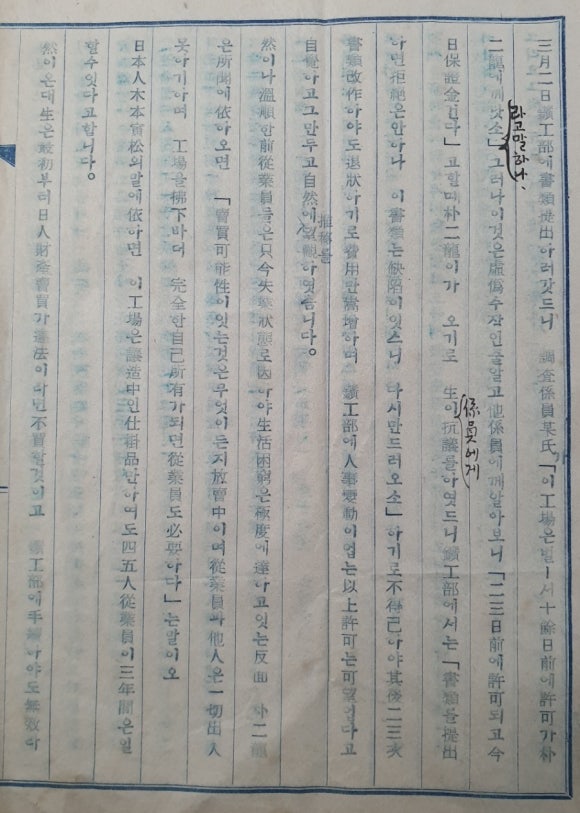 三月二日鑛工部에書類提出하러갓드니 調査係員某氏가「이工場은벌ー서十餘日前에許可가朴
二龍에게갓소」라고말하나、그러나이것은虛僞수작인줄알고他係員에게알아보니「二三日前에許可되고今
日保證金인다」고할때朴二龍이가 오기로 生이係員에게抗議를하엿드니鑛工部에서는「書類를提出
하면拒絶은안하나 이書類는缺陷이잇스니 다시만드러오소」하기로不得已하야其後二三次
書類改作하야도退狀하기로費用만增하며 鑛工部에人事變動이업는以上許可는可望업다고
自覺하고그만두고自然에推移를望觀하엿슴니다。
然이나溫順한前從業員들은只今失業狀態로因하야生活困窮은極度에達하고잇는反面 朴二龍
은所聞에依하오면 「賣買可能性이잇는것은무엇이든지放賣中이며從業員과他人은一切出入
못하기하며 工場을拂下바더 完全한自己所有가되면從業員도必要하다」는말이오
日本人木本實松의말에依하면 이工場은製造中인仕掛品만하여도四五人從業員이三年間은일
할수잇다고합니다。
然이온대生은最初부터日人財產賣買가違法이라면不買할것이고 鑛工部에手續하야도無效다